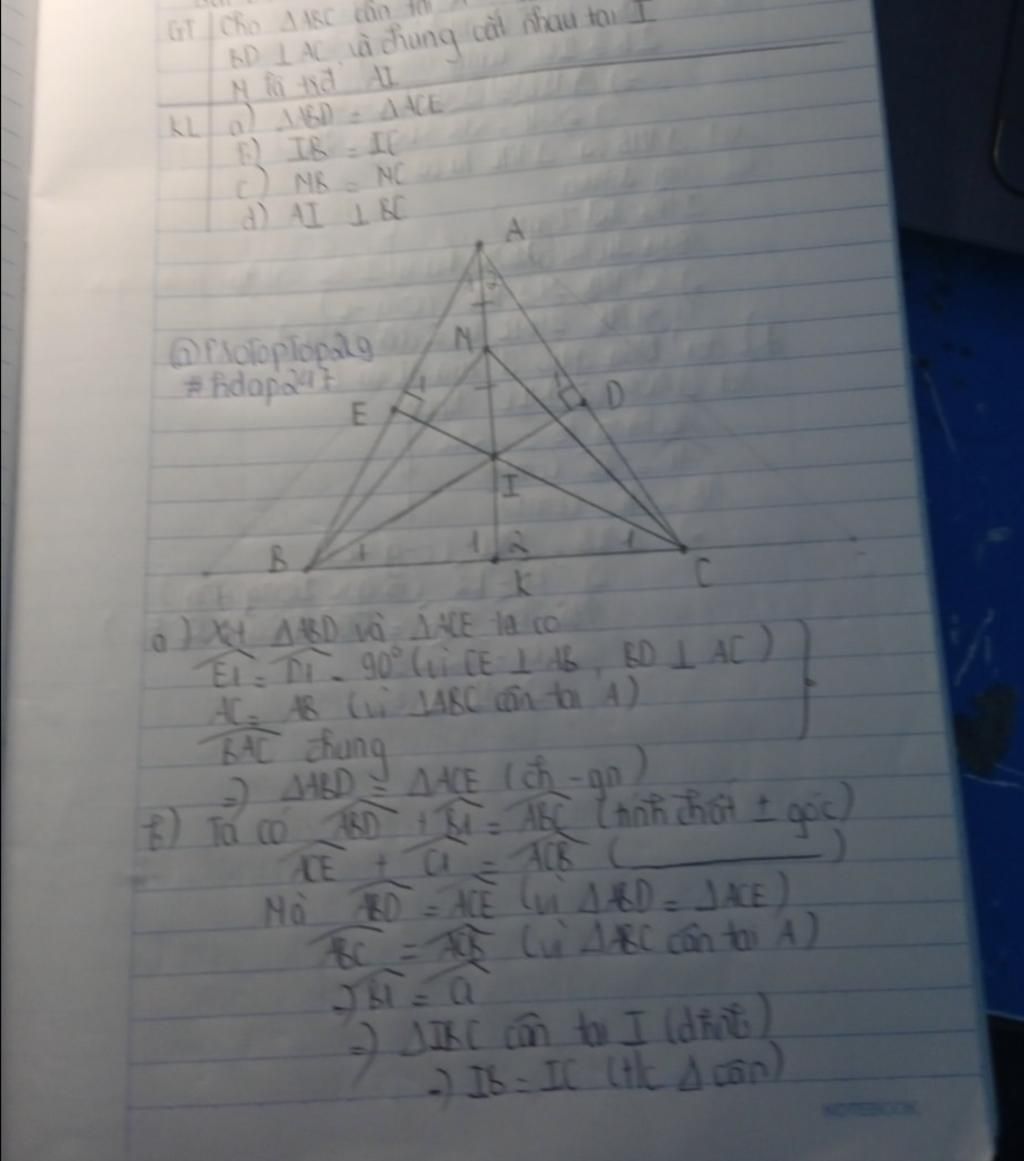 GT Cho ΔABC cân tại A
BD ⊥ AC và chúng cắt nhau tại I
M là trđ AI
KL a) ΔABD = ΔACE
b) IB = IC
c) MB = MC
d) AI ⊥ BC
A
1 2
M
@PhotopTop219
#hdap247
E 1 1 D
I
B 1 1 2 1 C
K
a) Xét ΔABD và ΔACE ta có
Ê1 = D̂1 = 90° (vì CE ⊥ AB, BD ⊥ AC)
AC = AB (vì ΔABC cân tại A)
B̂AC chung
=) ΔABD = ΔACE (ch - gn)
b) Ta có ÂBD + B̂1 = ÂBC (tính chất ± góc)
ÂCE + Ĉ1 = ÂCB ( ——— )
Mà ÂBD = ÂCE (vì ΔABD = ΔACE)
ÂBC = ÂCB (vì ΔABC cân tại A)
=) B̂1 = Ĉ1
=) ΔIBC cân tại I (dhnb)
=) IB = IC (t/c Δ cân)
NOTEBOOK